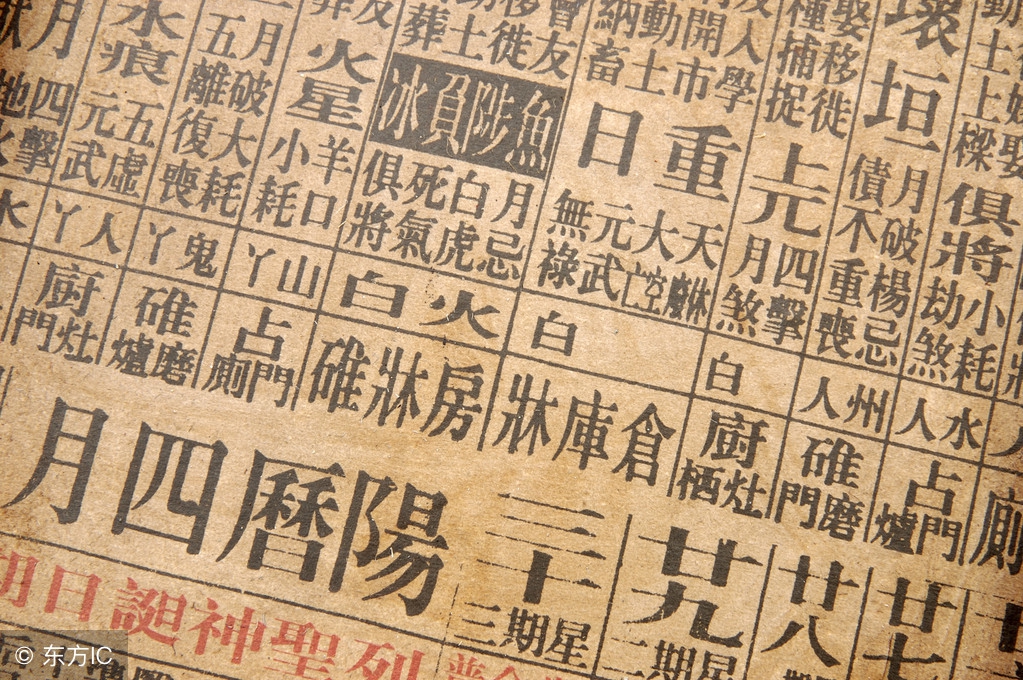 小耗
劫煞
俱將
壞垣
月破楊忌
債不重喪
娶移徙
種捕捉
四擊
月煞
人學
開市
動土
納畜
重日
天
大空亡
元武
無祿
會友
移徙
土
葬
魚陟負冰
月忌
白虎
死氣
俱將
火星
羊口
小耗
月破大耗
五離復喪
水痕
五虛
元武
月
四擊
水人
州人
白
白
火白
山丫
鬼丫
人丫
水
廁
占門爐
碓磨門
廚灶栖
倉庫牀
房牀碓
占門廁
碓磨爐
廚灶門
廿七
廿八
廿九
星期二
三十
星期三
陽曆四月
列聖神誕日期
© 东方IC